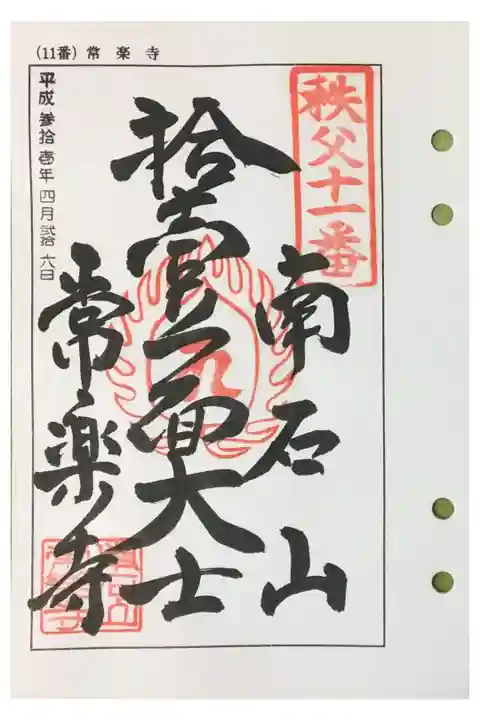 (11番) 常楽寺
秩父十一番
南石山
拾壹面大士
常楽寺
平成 参拾壱年 四月 弐拾六日